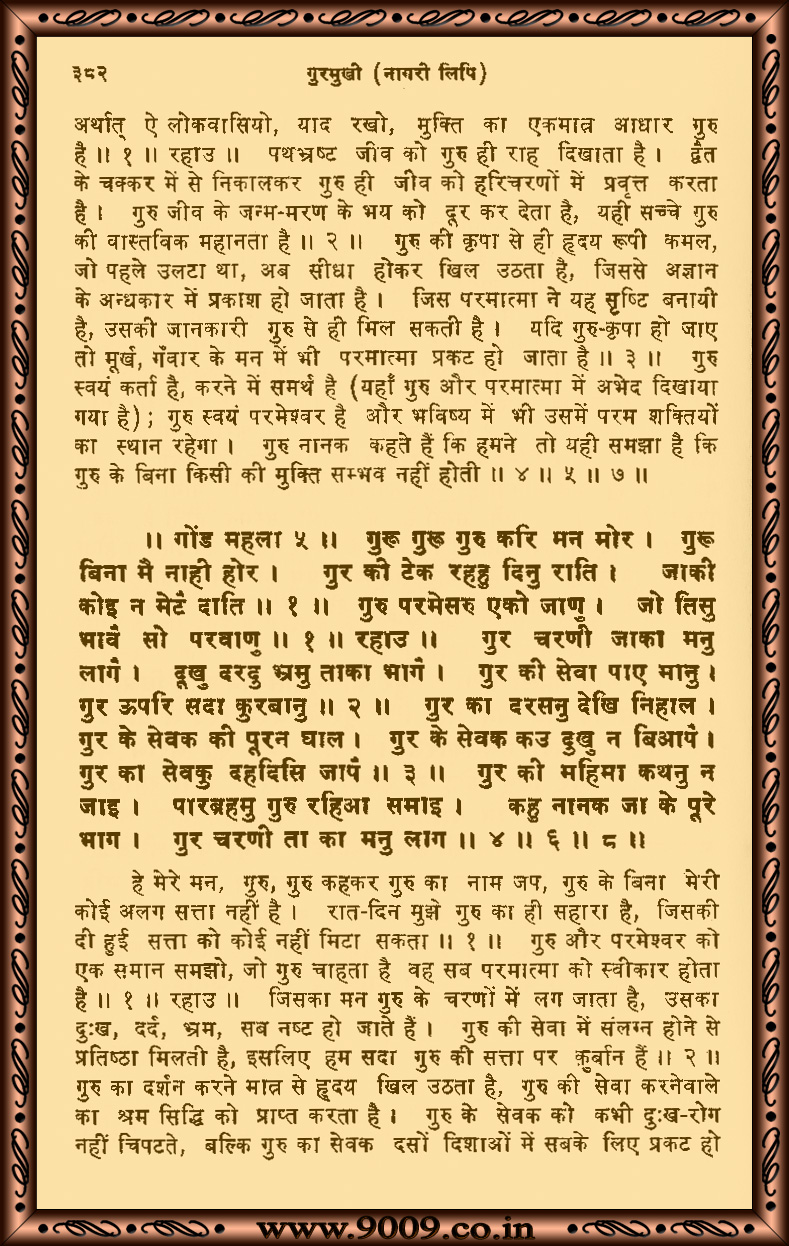 ३८२ गुरमुखी (नागरी लिपि)
अर्थात् ऐ लोकवासियो, याद रखो, मुक्ति का एकमात्र आधार गुरु
है ॥ १ ॥ रहाउ ॥ पथभ्रष्ट जीव को गुरु ही राह दिखाता है । द्वैत
के चक्कर में से निकालकर गुरु ही जीव को हरिचरणों में प्रवृत्त करता
है । गुरु जीव के जन्म-मरण के भय को दूर कर देता है, यही सच्चे गुरु
की वास्तविक महानता है ॥ २ ॥ गुरु की कृपा से ही हृदय रूपी कमल,
जो पहले उलटा था, अब सीधा होकर खिल उठता है, जिससे अज्ञान
के अन्धकार में प्रकाश हो जाता है । जिस परमात्मा ने यह सृष्टि बनायी
है, उसकी जानकारी गुरु से ही मिल सकती है । यदि गुरु-कृपा हो जाए
तो मूर्ख, गँवार के मन में भी परमात्मा प्रकट हो जाता है ॥ ३ ॥ गुरु
स्वयं कर्ता है, करने में समर्थ है (यहाँ गुरु और परमात्मा में अभेद दिखाया
गया है) ; गुरु स्वयं परमेश्वर है और भविष्य में भी उसमें परम शक्तियों
का स्थान रहेगा । गुरु नानक कहते हैं कि हमने तो यही समझा है कि
गुरु के बिना किसी की मुक्ति सम्भव नहीं होती ॥ ४ ॥ ५ ॥ ७ ॥
॥ गोंड महला ५ ॥ गुरू गुरू गुरु करि मन मोर । गुरू
बिना मै नाही होर । गुर की टेक रहहु दिनु राति । जाकी
कोइ न मेटै दाति ॥ १ ॥ गुरु परमेसरु एको जाणु । जो तिसु
भावै सो परवाणु ॥ १ ॥ रहाउ ॥ गुर चरणी जाका मनु
लागै । दूखु दरदु भ्रमु ताका भागै । गुर की सेवा पाए मानु ।
गुर ऊपरि सदा कुरबानु ॥ २ ॥ गुर का दरसनु देखि निहाल ।
गुर के सेवक की पूरन घाल । गुर के सेवक कउ दुखु न बिआपै ।
गुर का सेवकु दहदिसि जापै ॥ ३ ॥ गुर की महिमा कथनु न
जाइ । पारब्रहमु गुरु रहिआ समाइ । कहु नानक जा के पूरे
भाग । गुर चरणी ता का मनु लाग ॥ ४ ॥ ६ ॥ ८ ॥
हे मेरे मन, गुरु, गुरु कहकर गुरु का नाम जप, गुरु के बिना मेरी
कोई अलग सत्ता नहीं है । रात-दिन मुझे गुरु का ही सहारा है, जिसकी
दी हुई सत्ता को कोई नहीं मिटा सकता ॥ १ ॥ गुरु और परमेश्वर को
एक समान समझो, जो गुरु चाहता है वह सब परमात्मा को स्वीकार होता
है ॥ १ ॥ रहाउ ॥ जिसका मन गुरु के चरणों में लग जाता है, उसका
दुःख, दर्द, भ्रम, सब नष्ट हो जाते हैं । गुरु की सेवा में संलग्न होने से
प्रतिष्ठा मिलती है, इसलिए हम सदा गुरु की सत्ता पर क़ुर्बान हैं ॥ २ ॥
गुरु का दर्शन करने मात्र से हृदय खिल उठता है, गुरु की सेवा करनेवाले
का श्रम सिद्धि को प्राप्त करता है । गुरु के सेवक को कभी दुःख-रोग
नहीं चिपटते, बल्कि गुरु का सेवक दसों दिशाओं में सबके लिए प्रकट हो
www.9009.co.in